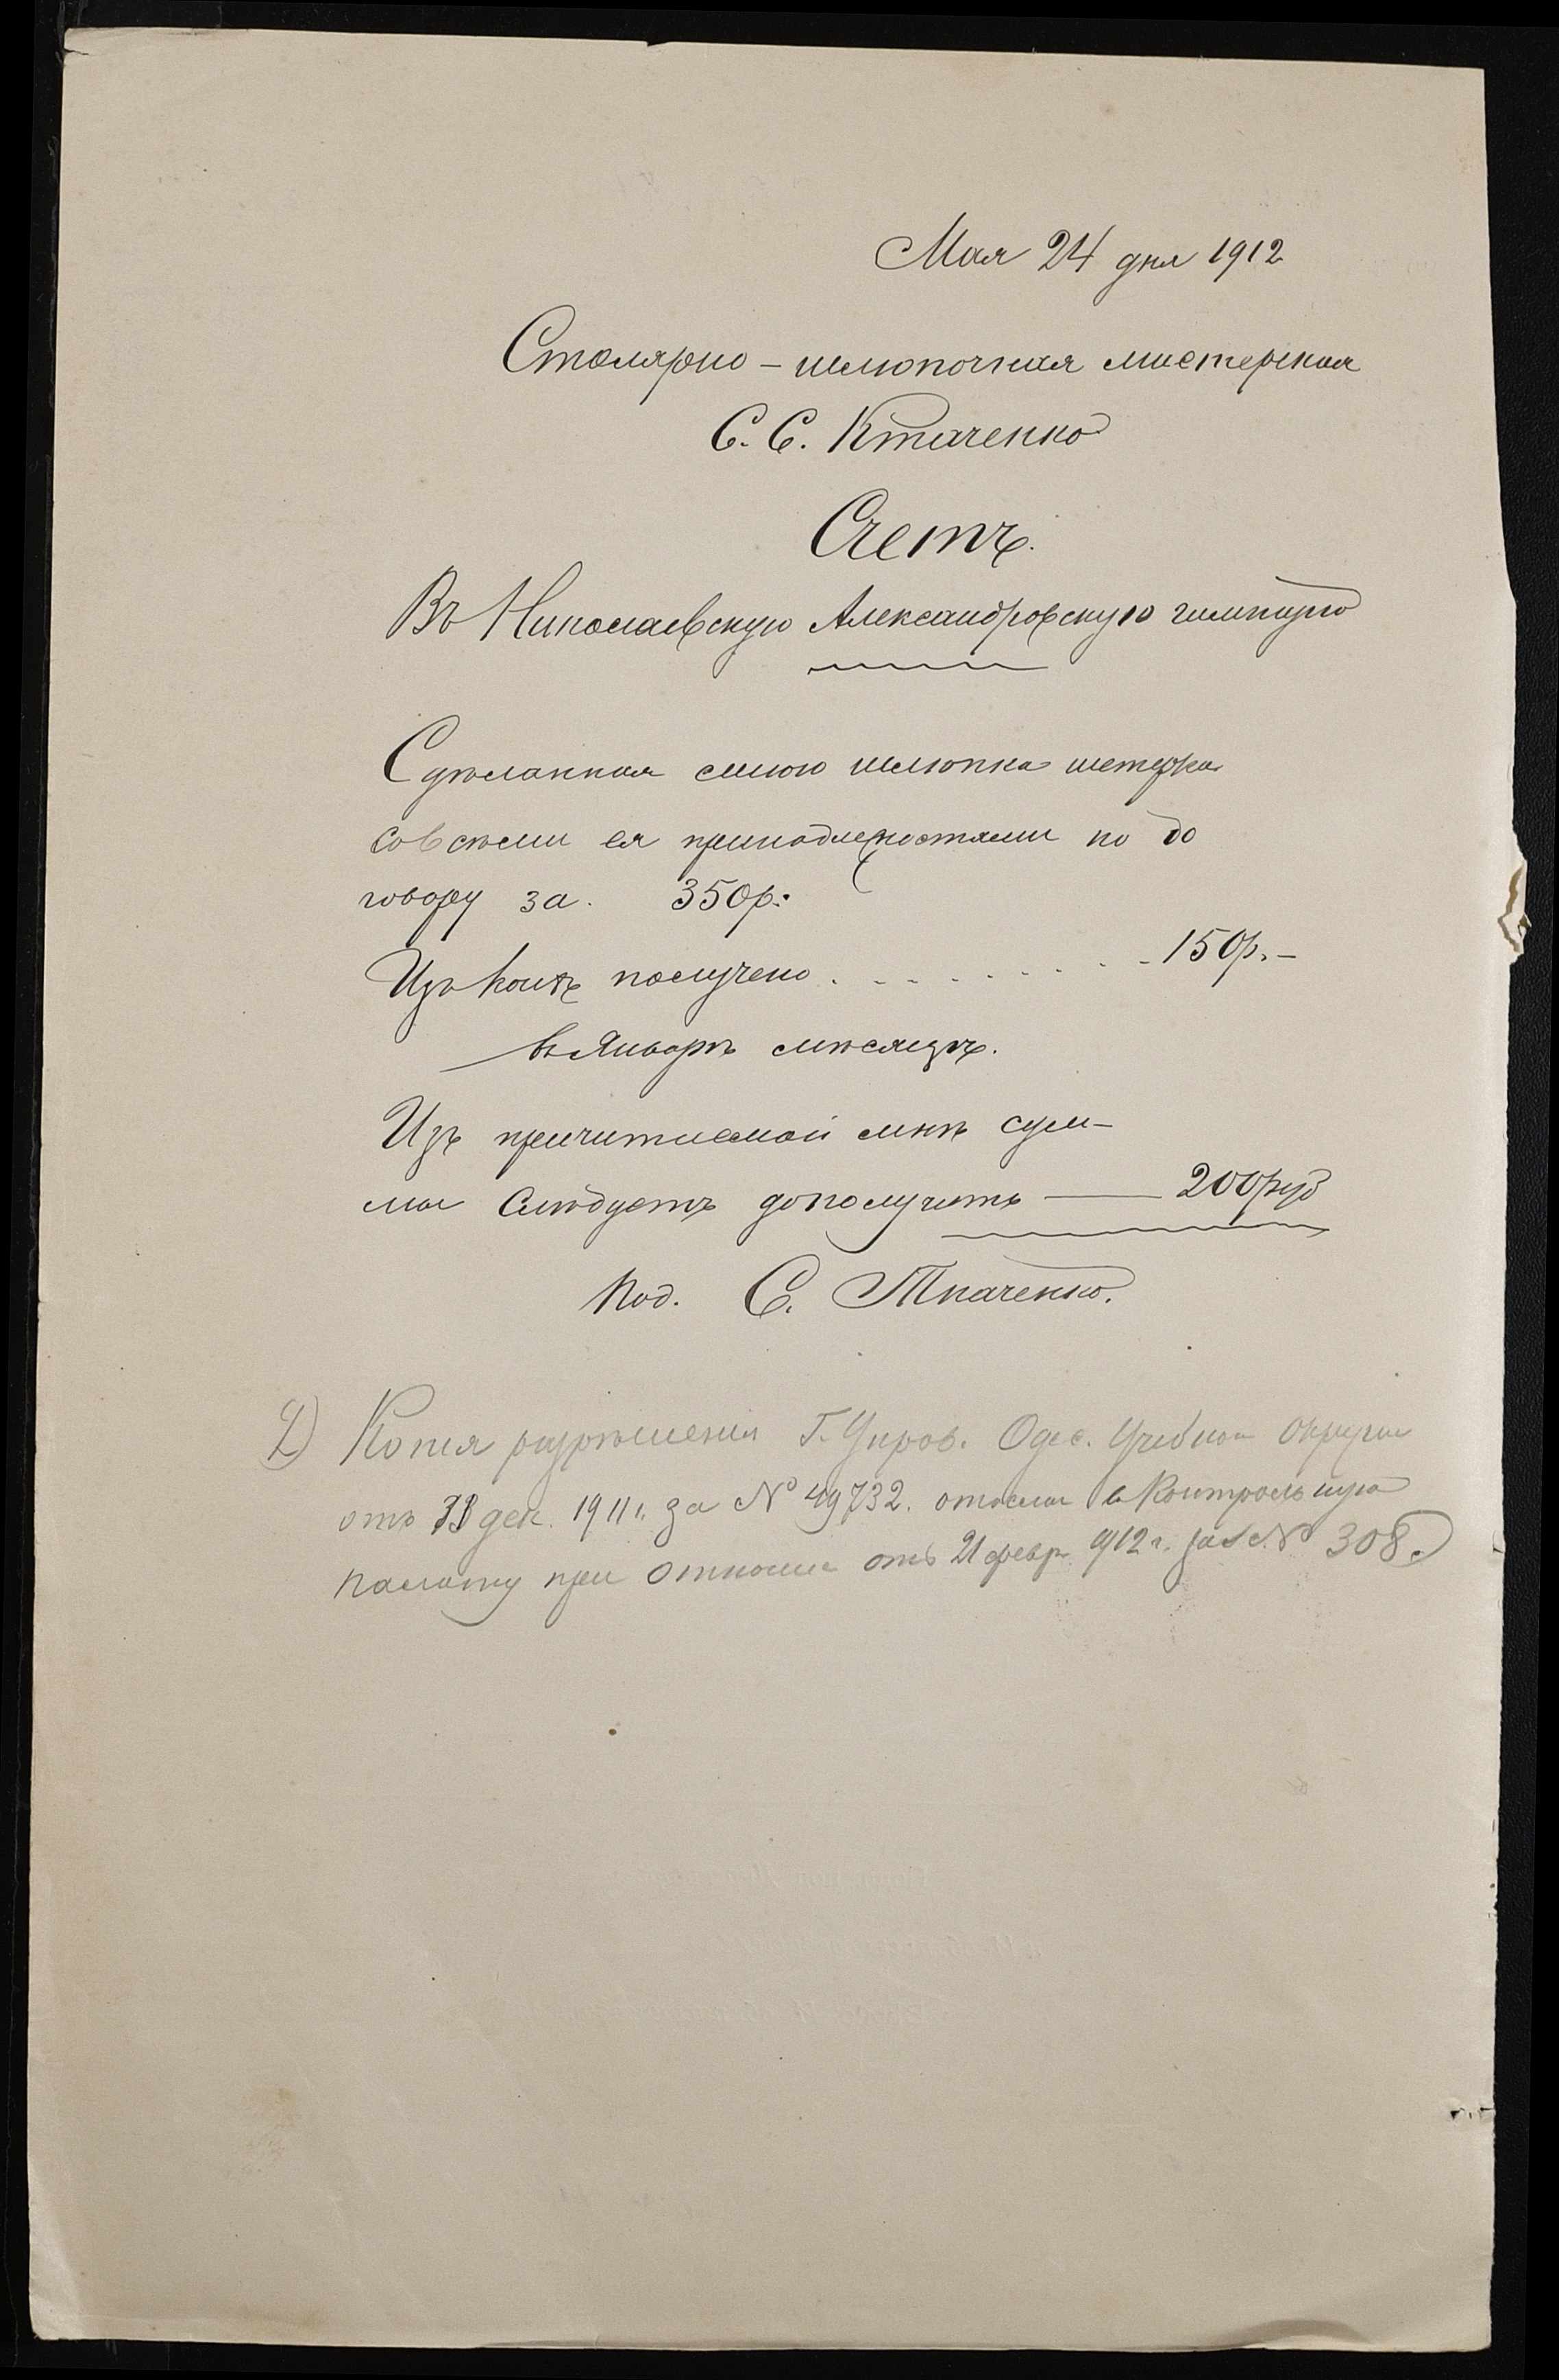 Мая 24 дня 1912
Столярно – шлюпочная мастерская
С. С. Кташенко
Счетъ.
Въ Николаевскую Александровскую гимназию
Сделанная мною шлюпка шетерка
совсѣми ея принадлежностями по до
говору за. 350р:
Изъ коихъ получено . . . . . . . . . 150р. –
въ Январѣ мѣсяцѣ.
Изъ причитаемой мнѣ сум–
мы Слѣдуетъ дополучить —— 200 руб
Под. С. Ткаченко.
2) Копія разрѣшенія Г. Управ. Одес. Учебном Округом
отъ 31 дек. 1911 г. за № 49732. отослан в Контрольную
палату при отнош отъ 21 февр. 912 г. за № 308.